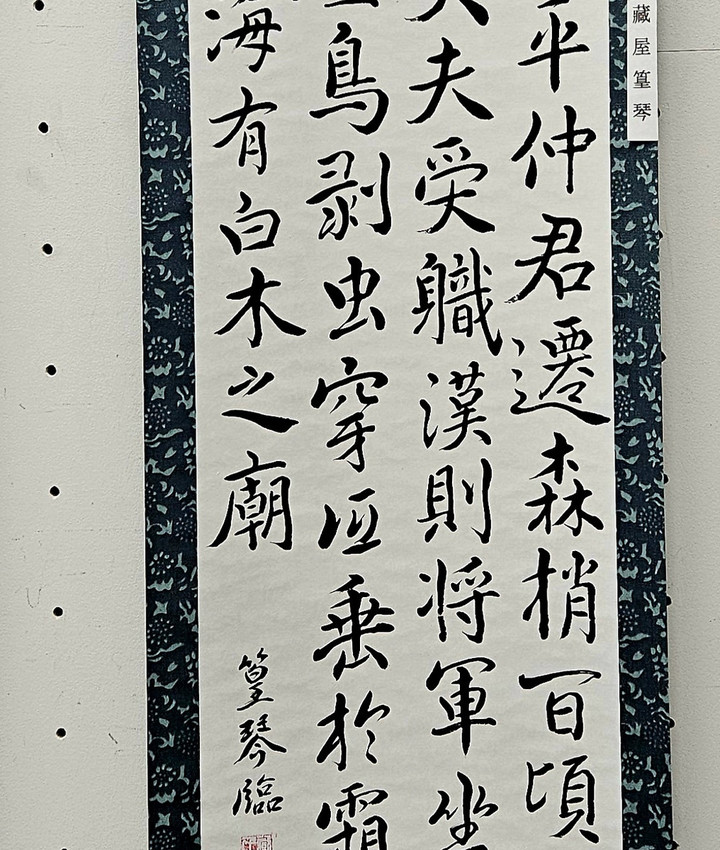 藏屋篁琴
平仲君遷森梢百頃
夫受職漢則将軍坐
鳥剥虫穿𫝑垂於霜
海有白木之廟
篁琴臨